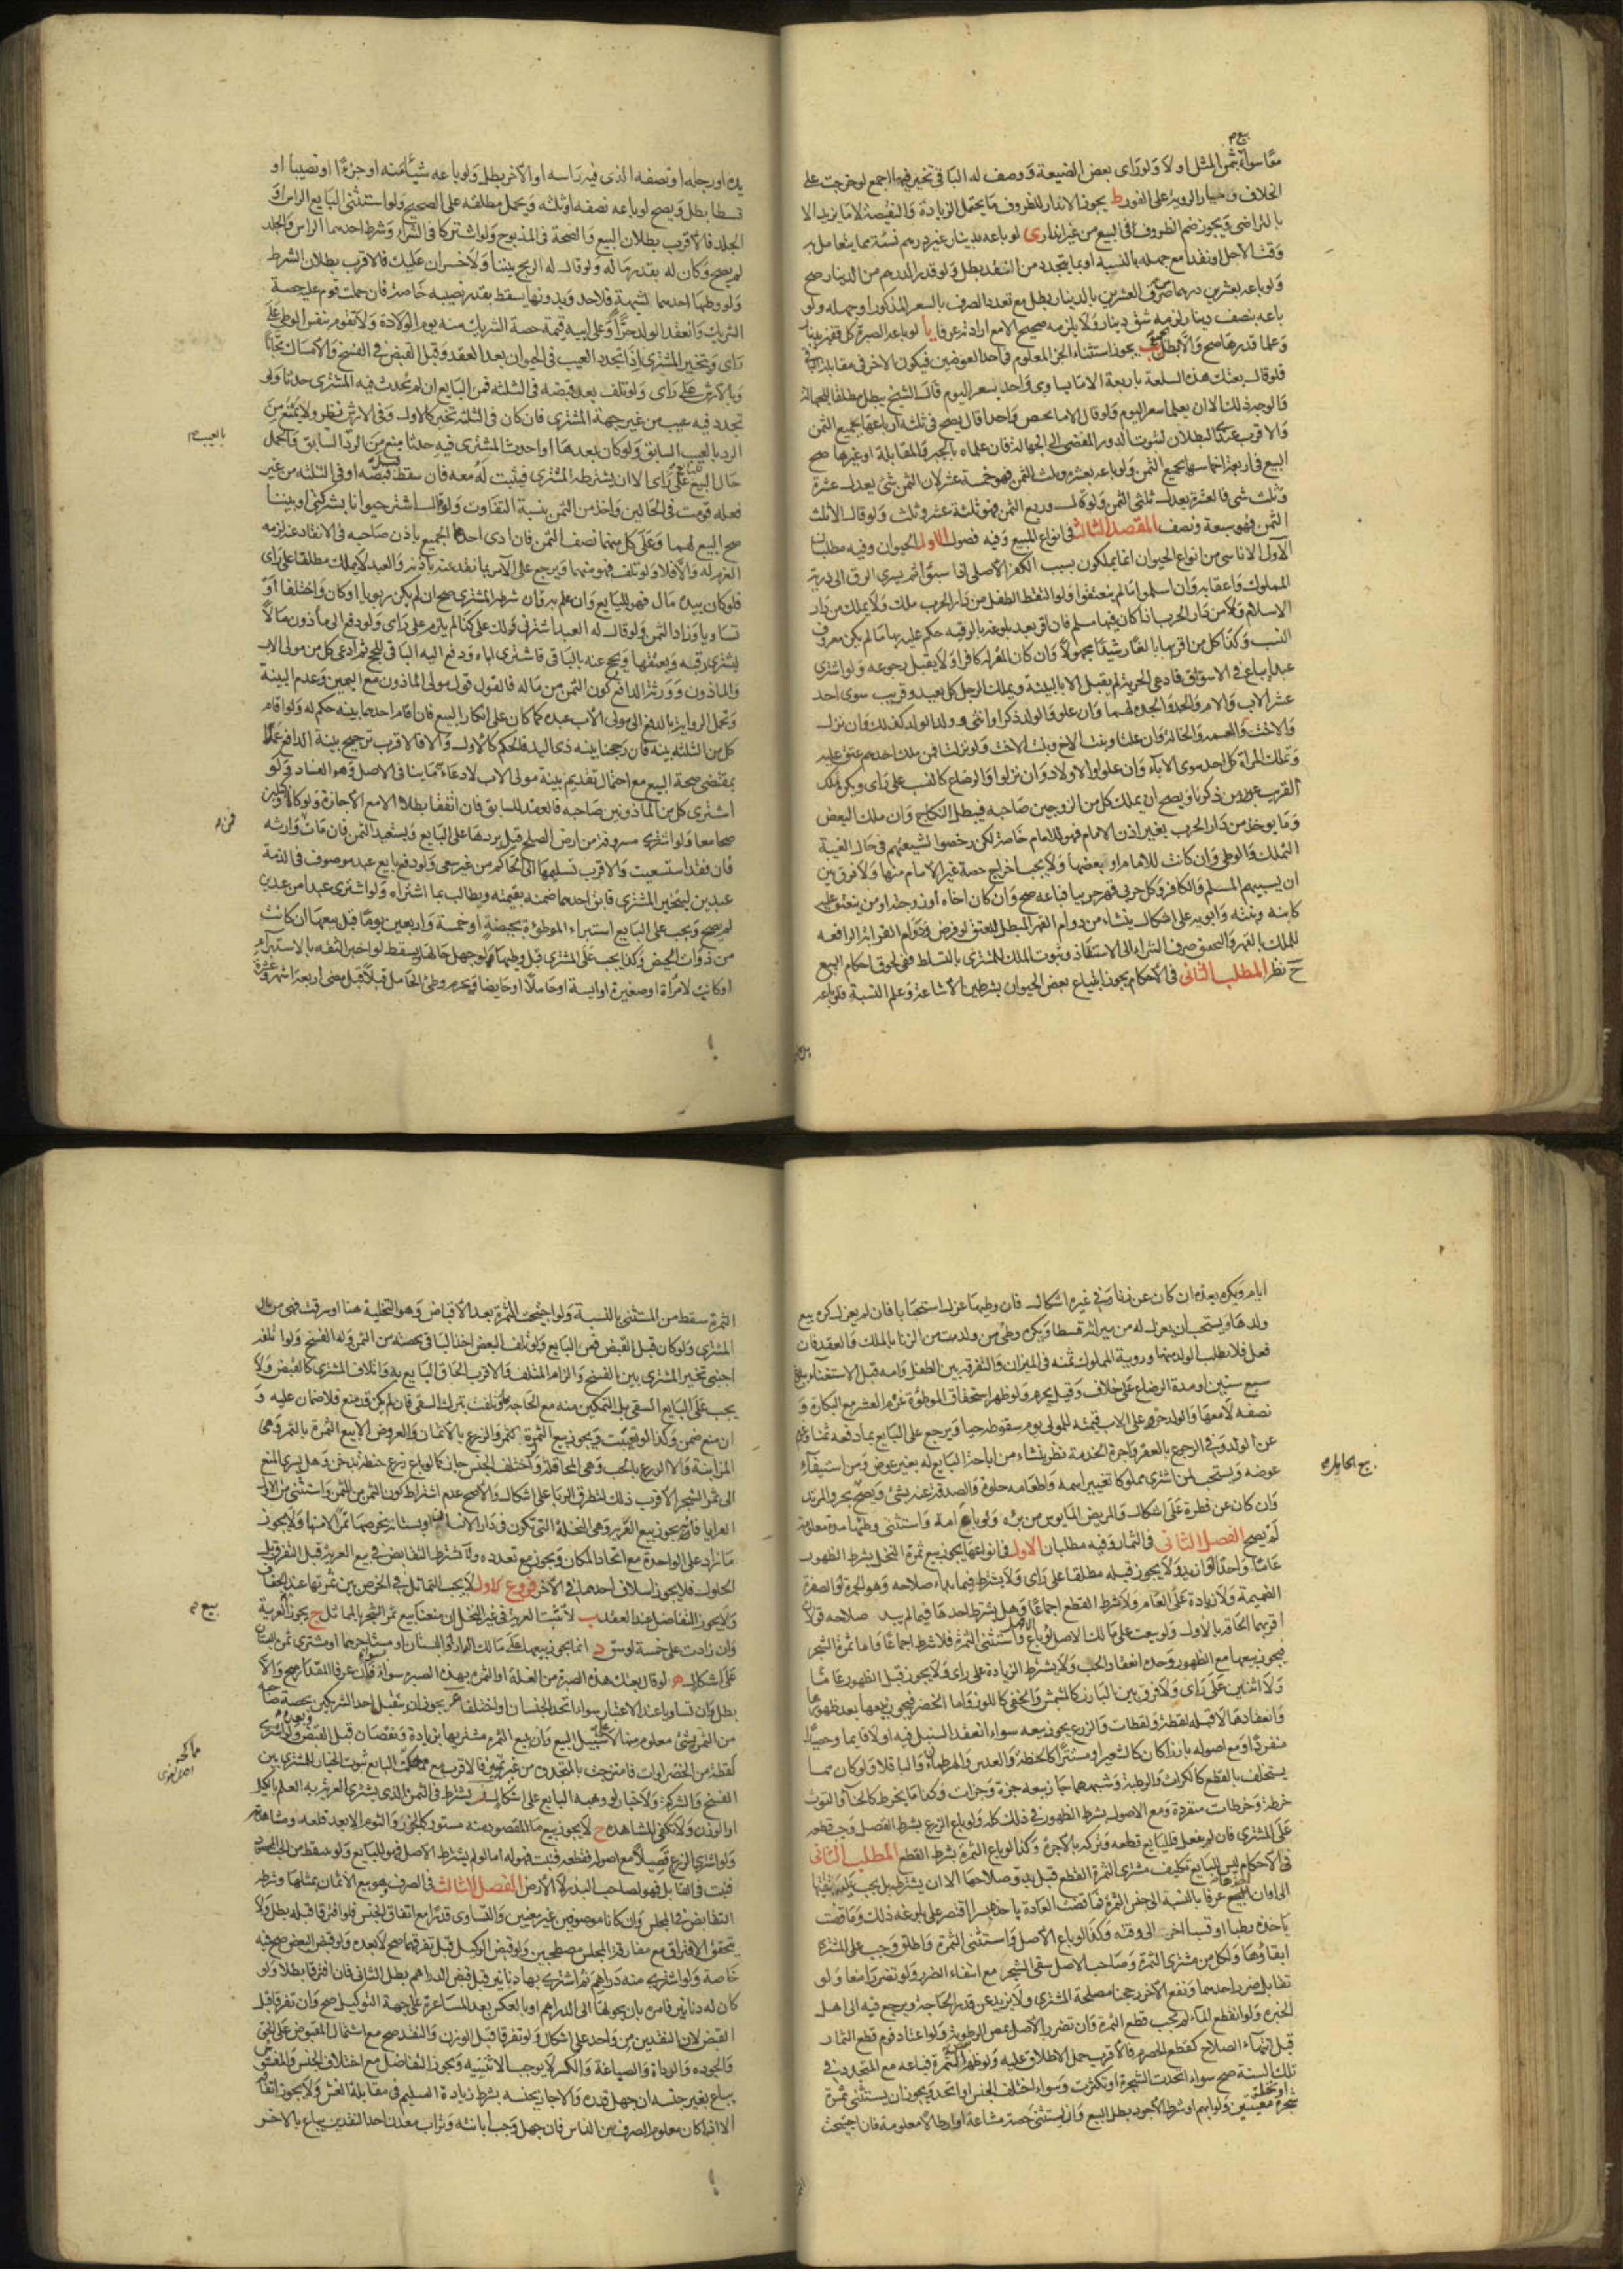 بيع م
معًا سواء بثمن المثل اولا ولو رأى بعض الضيعة ووصف له الباقى تخير فيها اجمع لو خرجت على
الخلاف وخيار الروية على الفور ط يجوز الانذار للظروف ما يحتمل الزيادة والنقيصة لا ما يزيد الا
بالتراضى ويجوز ضم الظروف فى البيع من غير انذار ى لو باعه بدينار غير درهم نسئة مما يتعامل به
وقت الاجل او نقدا مع جهله بالنسبة او بما يتجدد من النقد بطل ولو قدر الدرهم من الدينار صح
ولو باعه بعشرين درهما من صرف العشرين بالدينار بطل مع تعدد الصرف بالسعر المذكور او جهله ولو
باعه بنصف دينار لزمه شق دينار ولا يلزمه صحيح الا مع ارادته عرفا يا لو باعه الصبرة كل قفيز بدينار
وعلما قدرها صح والا بطل يب يجوز استثناء الجزء المعلوم فى احد العوضين فيكون الاخر فى مقابلة الباقى
فلو قال بعتك هذه السلعة باربعة الا ما يساوى واحدا بسعر اليوم قال الشيخ يبطل مطلقا للجهالة
والوجه ذلك الا ان يعلما سعر اليوم ولو قال الا ما يخص واحدا قال يصح فى ثلثة ارباعها بجميع الثمن
والاقرب عندى البطلان لثبوت الدور المفضى الى الجهالة فان علماه بالجبر والمقابلة او غيرها صح
البيع فى اربعة اخماسها بجميع الثمن ولو باعه بعشرة وثلث الثمن فهو خمسة عشر لان الثمن شئ يعدل عشرة
وثلث شئ فالعشرة يعدل ثلثى الثمن ولو قال وربع الثمن فهو ثلثة عشر وثلث ولو قال الا ثلث
الثمن فهو سبعة ونصف المقصد الثالث فى انواع المبيع وفيه فصول الاول الحيوان وفيه مطلبان
الاول الاناسى من انواع الحيوان انما يملكون بسبب الكفر الاصلى اذا سبوا ثم يسرى الرق الى ذرية
المملوك واعقابه وان اسلموا ما لم ينعتقوا ولو التقط الطفل من دار الحرب ملك ولا يملك من دار
الاسلام ولا من دار الحرب اذا كان فيها مسلم فان اقر بعد بلوغه بالرقية حكم عليه بها ما لم يكن معروف
النسب وكذا كل من اقر بها بالغا رشيدا مجهولا وان كان المقر له كافرا ولا يقبل رجوعه ولو اشترى
عبدا يباع فى الاسواق فادعى الحرية لم يقبل الا بالبينة ويملك الرجل كل بعيد وقريب سوى احد
عشر الاب والام والجد والجدة لهما وان علو والولد ذكرا او انثى وولد الولد كذلك وان نزل
والاخت والعمة والخالة وان علتا وبنت الاخ وبنت الاخت ولو نزلتا فمن ملك احدهم عتق عليه
وتملك المراة كل احد سوى الاباء وان علوا والاولاد وان نزلوا والرضاع كالنسب على راى ويكره تملك
القريب عوروين ذكرنا ويصح ان يملك كل من الزوجين صاحبه فيبطل النكاح وان ملك البعض
وما يوخذ من دار الحرب بغير اذن الامام فهو للامام خاصة لكن رخصوا لشيعتهم فى حال الغيبة
التملك والوطى وان كانت للامام او بعضها ولا يجب اخراج حصة غير الامام منها ولا فرق بين
ان يسبيهم المسلم والكافر وكل حربى قهر حربيا فباعه صح وان كان اخاه او زوجته او من ينعتق عليه
كابنه وبنته وابويه على اشكال ينشاء من دوام القهر المبطل للعتق لو فرض ودوام القرابة الرافعة
للملك بالقهر والتحقيق صرف الشراء الى الاستنقاذ وثبوت الملك للمشترى بالتسلط ففى لحوق احكام البيع
ح نظر المطلب الثانى فى الاحكام يجوز ابتياع بعض الحيوان بشرطين الاشاعة وعلم النسبة فلو باعه
يده او رجله او نصفه الذى فيه راسه او الاخر بطل ولو باعه شيئا منه او جزءا او نصيبا او
قسطا بطل ويصح لو باعه نصفه او ثلثه ويحمل مطلقه على الصحيح ولو استثنى البايع الراس او
الجلد فالاقرب بطلان البيع والصحة فى المذبوح ولو اشتركا فى الشراء وشرط احدهما الراس والجلد
لم يصح وكان له بقدر ماله ولو قال له الربح بيننا ولا خسران عليك فالاقرب بطلان الشرط
ولو وطيها احدهما لشبهة فلا حد وبدونها يسقط بقدر نصيبه خاصة فان حملت قوم عليه حصة
الشريك وانعقد الولد حرا وعلى ابيه قيمة حصة الشريك منه يوم الولادة ولا تقوم بنفس الوطى على
راى ويتخير المشترى اذا تجدد العيب فى الحيوان بعد العقد وقبل القبض فى الفسخ والامساك مجانا
وبالارش على راى ولو تلف بعد قبضه فى الثلثة فمن البايع ان لم يحدث فيه المشترى حدثا ولو
تجدد فيه عيب من غير جهة المشترى فان كان فى الثلثة تخير كالاول وفى الارش نظر ولا يمنع من
الرد بالعيب السابق ولو كان بعدها او احدث المشترى فيه حدثا منع من الرد السابق والحمل
بالعيب م
حال البيع للبايع على راى الا ان يشترطه المشترى فيثبت له معه فان سقط قبل قبضه او فى الثلثة من غير
فعله قومت فى الحالين واخذ من الثمن بنسبة التفاوت ولو قال اشتر حيوانا بشركتى او بيننا
صح البيع لهما وعلى كل منهما نصف الثمن فان ادى احدهما الجميع باذن صاحبه فى الانقاد عنه لزمه
الغرم له والا فلا ولو تلف فهو منهما ويرجع على الامر بما نقد عنه باذنه والعبد لا يملك مطلقا على راى
فلو كان بيده مال فهو للبايع وان علم به وان شرطه المشترى صح ان لم يكن ربويا او كان واختلفا او
تساويا وزاد الثمن ولو قال له العبد اشترنى ولك على كذا لم يلزم على راى ولو دفع الى ماذون مالا
ليشترى رقبة ويعتقها ويحج عنه بالباقى فاشترى اباه ودفع اليه الباقى للحج ثم ادعى كل من مولى الاب
والماذون وورثة الدافع كون الثمن من ماله فالقول قول مولى الماذون مع اليمين وعدم البينة
وتحمل الرواية بالدفع الى مولى الاب عبده كما كان على انكار البيع فان اقام احدهما بينه حكم له ولو اقام
كل من الثلثة بينه فان رجحنا بينه ذى اليد فالحكم كالاول والا فالاقرب ترجيح بينة الدافع عملا
بمقتضى صحة البيع مع احتمال تقديم بينة مولى الاب لادعائه ما ينافى الاصل وهو الفساد ولو
اشترى كل من الماذونين صاحبه فالعقد للسابق فان اتفقا بطلا الا مع الاجازة ولو كانا وكيلين
صحا معا ولو اشترى مسروقة من ارض الصلح قيل يردها على البايع ويستعيد الثمن فان مات فمن وارثه
فان فقد استسعيت والاقرب تسليمها الى الحاكم من غير سعى ولو دفع بايع عبد موصوف فى الذمة
عبدين ليتخير المشترى فابق احدهما ضمنه بقيمته ويطالب بما اشتراه ولو اشترى عبدا من عبدين
لم يصح ويجب على البايع استبراء الموطوة بحيضة او خمسة واربعين يوما قبل بيعها ان كانت
من ذوات الحيض وكذا يجب على المشترى قبل وطيها لو جهل حالها ويسقط لو اخبر الثقة بالاستبراء
او كانت لامراة او صغيرة او ايسة او حاملا او حايضا ويحرم وطئ الحامل قبلا قبل مضى اربعة اشهر وعشرة
ايام ويكره بعده ان كان عن زنا وفى غيره اشكال فان وطيها عزل استحبابا فان لم يعزل كره بيع
ولدها ويستحب ان يعزل له من ميراثه قسطا ويكره وطى من ولدت من الزنا بالملك والعقد فان
فعل فلا يطلب الولد منها وروية المملوك ثمنه فى الميزان والتفرقة بين الطفل وامه قبل الاستغناء ببلوغ
سبع سنين او مدة الرضاع على خلاف وقيل يحرم ولو ظهر استحقاق الموطوة غرم العشر مع البكارة و
نصفه لا معها والولد حر وعلى الاب قيمته للمولى يوم سقوطه حيا ويرجع على البايع بما دفعه ثمنا وغرم
عن الولد وفى الرجوع بالعقر واجرة الخدمة نظر ينشاء من اباحة البايع له بغير عوض ومن استيفاء
عوضه ويستحب لمن اشترى مملوكا تغيير اسمه واطعامه حلوة والصدقة عنه بشئ ويصح بيع المرتد
وان كان عن فطرة على اشكال والمريض المايوس من برئه ولو باع امة واستثنى وطيها مدة معلومة
لم يصح الفصل الثانى فى الثمار وفيه مطلبان الاول فى انواعها يجوز بيع ثمرة النخل بشرط الظهور
عاما واحدا او ازيد ولا يجوز قبله مطلقا على راى ولا يشترط فيما بدا صلاحه وهو الحمرة او الصفرة
الضميمة ولا زيادة على العام ولا شرط القطع اجماعا وهل يشترط احدها فيما لم يبد صلاحه قولان
اقربهما الحاقه بالاول ولو بيعت على مالك الاصل او باع الاصل واستثنى الثمرة فلا شرط اجماعا واما ثمرة الشجر
فيجوز بيعها مع الظهور وحده انعقاد الحب ولا يشترط الزيادة على راى ولا يجوز قبل الظهور عاما
ولا اثنين على راى ولا فرق بين البارز كالمشمش والخفى كاللوز واما الخضر فيجوز بيعها بعد ظهورها
وانعقادها لا قبله لقطة ولقطات والزرع يجوز بيعه سواء انعقد السنبل فيه اولا قايما وحصيدا
منفردا ومع اصوله بارزا كان كالشعير او مستترا كالحنطة والعدس والهرطمان والباقلا ولو كان مما
يستخلف بالقطع كالكراث والرطبة وشبههما جاز بيعه جزة وجزات وكذا ما يخرط كالحناء والتوت
خرطة وخرطات منفردة ومع الاصول بشرط الظهور فى ذلك كله ولو باع الزرع بشرط الفصل وجب قطعه
على المشترى فان لم يفعل فللبايع قطعه وتركه بالاجرة وكذا لو باع الثمرة بشرط القطع المطلب الثانى
فى الاحكام ليس للبايع تكليف مشترى الثمرة القطع قبل بدو صلاحها الا ان يشترطه بل يجب عليه تبقيتها
الى اوان البلوغ عرفا بالنسبة الى جنس الثمرة فما قضت العادة باخذه بسرا اقتصر على بلوغه ذلك وما قضت
باخذه رطبا او قسبا اخر الى وقته وكذا لو باع الاصل واستثنى الثمرة واطلق وجب على المشترى
ابقاوها ولكل من مشترى الثمرة وصاحب الاصل سقى الشجر مع انتفاء الضرر ولو تضررا منعا ولو
تقابل ضرر احدهما ونفع الاخر رجحنا مصلحة المشترى ولا يزيد عن قدر الحاجة ويرجع فيه الى اهل
الخبرة ولو انقطع الماء لم يجب قطع الثمرة وان تضرر الاصل بمص الرطوبة ولو اعتاد قوم قطع الثمار
قبل انتهاء الصلاح كقطع الحصرم فالاقرب حمل الاطلاق عليه ولو ظهر بعض الثمرة فباعه مع المتجدد فى
تلك السنة صح سواء اتحدت الشجرة او تكثرت وسواء اختلف الجنس او اتحد ويجوز ان يستثنى ثمرة
شجرة او نخلة معينتين ولو ابهم او شرط الاجود بطل البيع وان يستثنى حصة مشاعة او ارطالا معلومة فان اجتيحت
الثمرة سقط من المستثنى بالنسبة ولو اجتيحت الثمرة بعد الاقباض وهو التخلية هنا او سرقت فهى من مال
المشترى ولو كان قبل القبض فمن البايع ولو تلف البعض اخذ الباقى بحصته من الثمن وله الفسخ ولو اتلفه
اجنبى تخير المشترى بين الفسخ والزام المتلف والاقرب الحاق البايع به واتلاف المشترى كالقبض ولا
يجب على البايع السقى بل التمكين منه مع الحاجة فلو تلفت بترك السقى فان لم يكن قد منع فلا ضمان عليه و
ان منع ضمن وكذا لو تعيبت ويجوز بيع الثمرة والزرع بالاثمان والعروض الا بيع الثمرة بالتمر وهى
المزابنة والا الزرع بالحب وهى المحاقلة ولو اختلف الجنس جاز كما لو باع زرع حنطة بدخن وهل يسرى المنع
الى ثمر الشجر الاقرب ذلك لتطرق الربا على اشكال والاصح عدم اشتراط كون الثمن من المثمن واستثنى من الاول
العرايا فانه يجوز بيع العرية وهى النخلة التى تكون فى دار الانسان او بستانه بخرصها تمرا لا منها ولا يجوز
ما زاد على الواحدة مع اتحاد المكان ويجوز مع تعدده ولا يشترط التقابض فى بيع العرية قبل التفرق بل
الحلول فلا يجوز اسلاف احدهما فى الاخر فروع الاول لا يجب التماثل فى الخرص بين ثمرتها عند الجفاف
ولا يجوز التفاضل عند العقد ب لا تثبت العرية فى غير النخل ان منعنا بيع ثمر الشجر بالمماثل ج يجوز بيع العرية
بيع م
وان زادت على خمسة اوسق د انما يجوز بيعها على مالك الدار او البستان او مستاجرهما او مشترى ثمرة البستان
على اشكال ه لو قال بعتك هذه الصبرة من الغلة او الثمرة بهذه الصبرة سواء فان عرفا المقدار صح والا
بطل وان تساويا عند الاعتبار سواء اتحد الجنسان او اختلفا و يجوز ان يتقبل احد الشريكين بحصة صاحبه
من الثمرة بشئ معلوم منها لا على سبيل البيع وان يبيع الثمرة مشتريها بزيادة ونقصان قبل القبض وبعده ولو اشترى
لقطة من الخضراوات فامتزجت بالمتجدد من غير تميز فالاقرب مع مماحكة البايع ثبوت الخيار للمشترى بين
الفسخ والشركة ولا خيار لو وهبه البايع على اشكال ز يشترط فى الثمن الذى يشترى العرية به العلم بالكيل
او الوزن ولا تكفى المشاهدة ح لا يجوز بيع ما المقصود منه مستور كالجزر والثوم الا بعد قلعه او مشاهدته
ولو اشترى الزرع قصيلا مع اصوله فقطعه فنبت فهو له اما لو لم يشترط الاصل فهو للبايع ولو سقط من الحب المحصود
فنبت فى القابل فهو لصاحب البذر لا الارض الفصل الثالث فى الصرف وهو بيع الاثمان بمثلها وشرطه
التقابض فى المجلس وان كانا موصوفين غير معينين والتساوى قدرا مع اتفاق الجنس فلو افترقا قبله بطل ولا
يتحقق الافتراق مع مفارقة المجلس مصطحبين ولو قبض الوكيل قبل تفرقهما صح لا بعده ولو قبض البعض صح فيه
خاصة ولو اشترى منه دراهم ثم اشترى بها دنانير قبل قبض الدراهم بطل الثانى فان افترقا بطلا ولو
كان له دنانير فامره بان يحولها الى الدراهم او بالعكس بعد المساعرة على جهة التوكيل صح وان تفرقا قبل
القبض لان النقدين من واحد على اشكال ولو تفرقا قبل الوزن والنقد صح مع اشتمال المقبوض على الحق
والجودة والرداة والصياغة والكسر لا يوجب الاثنينية ويجوز التفاضل مع اختلاف الجنس والمغشوش
يباع بغير جنسه ان جهل قدره والا جاز بجنسه بشرط زيادة السليم فى مقابلة الغش ولا يجوز انفاقه
الا اذا كان معلوم الصرف بين الناس فان جهل وجب ابانته وتراب معدن احد النقدين يباع بالاخر